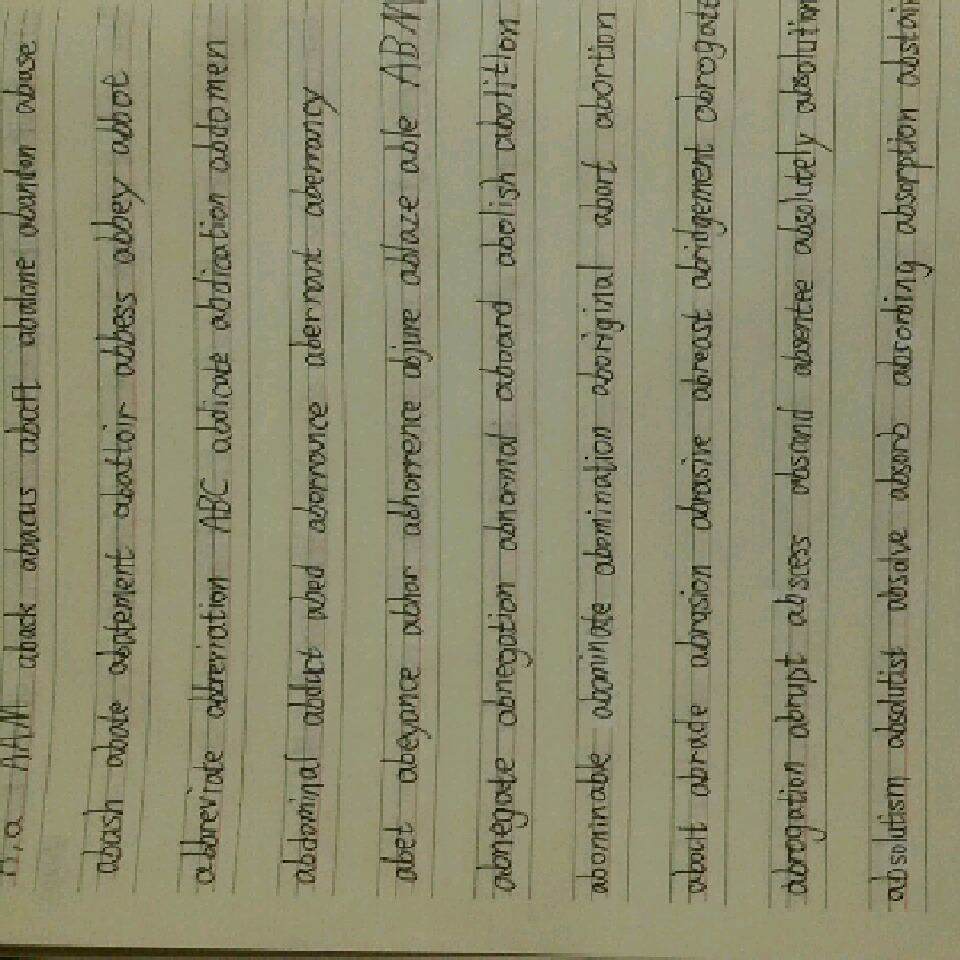 A, a AAM aback abacus abaft abalone abandon abase
abash abate abatement abattoir abbess abbey abbot
abbreviate abbreviation ABC abdicate abdication abdomen
abdominal abduct abed aberrance aberrant aberrancy
abet abeyance abhor abhorrence abjure ablaze able ABM
abnegate abnegation abnormal aboard abolish abolition
abominable abominate abomination aboriginal abort abortion
about abrade abrasion abrasive abreast abridgement abrogate
abrogation abrupt abscess abscond absentee absolutely absolution
absolutism absolutist absolve absorb absorbing absorption abstain